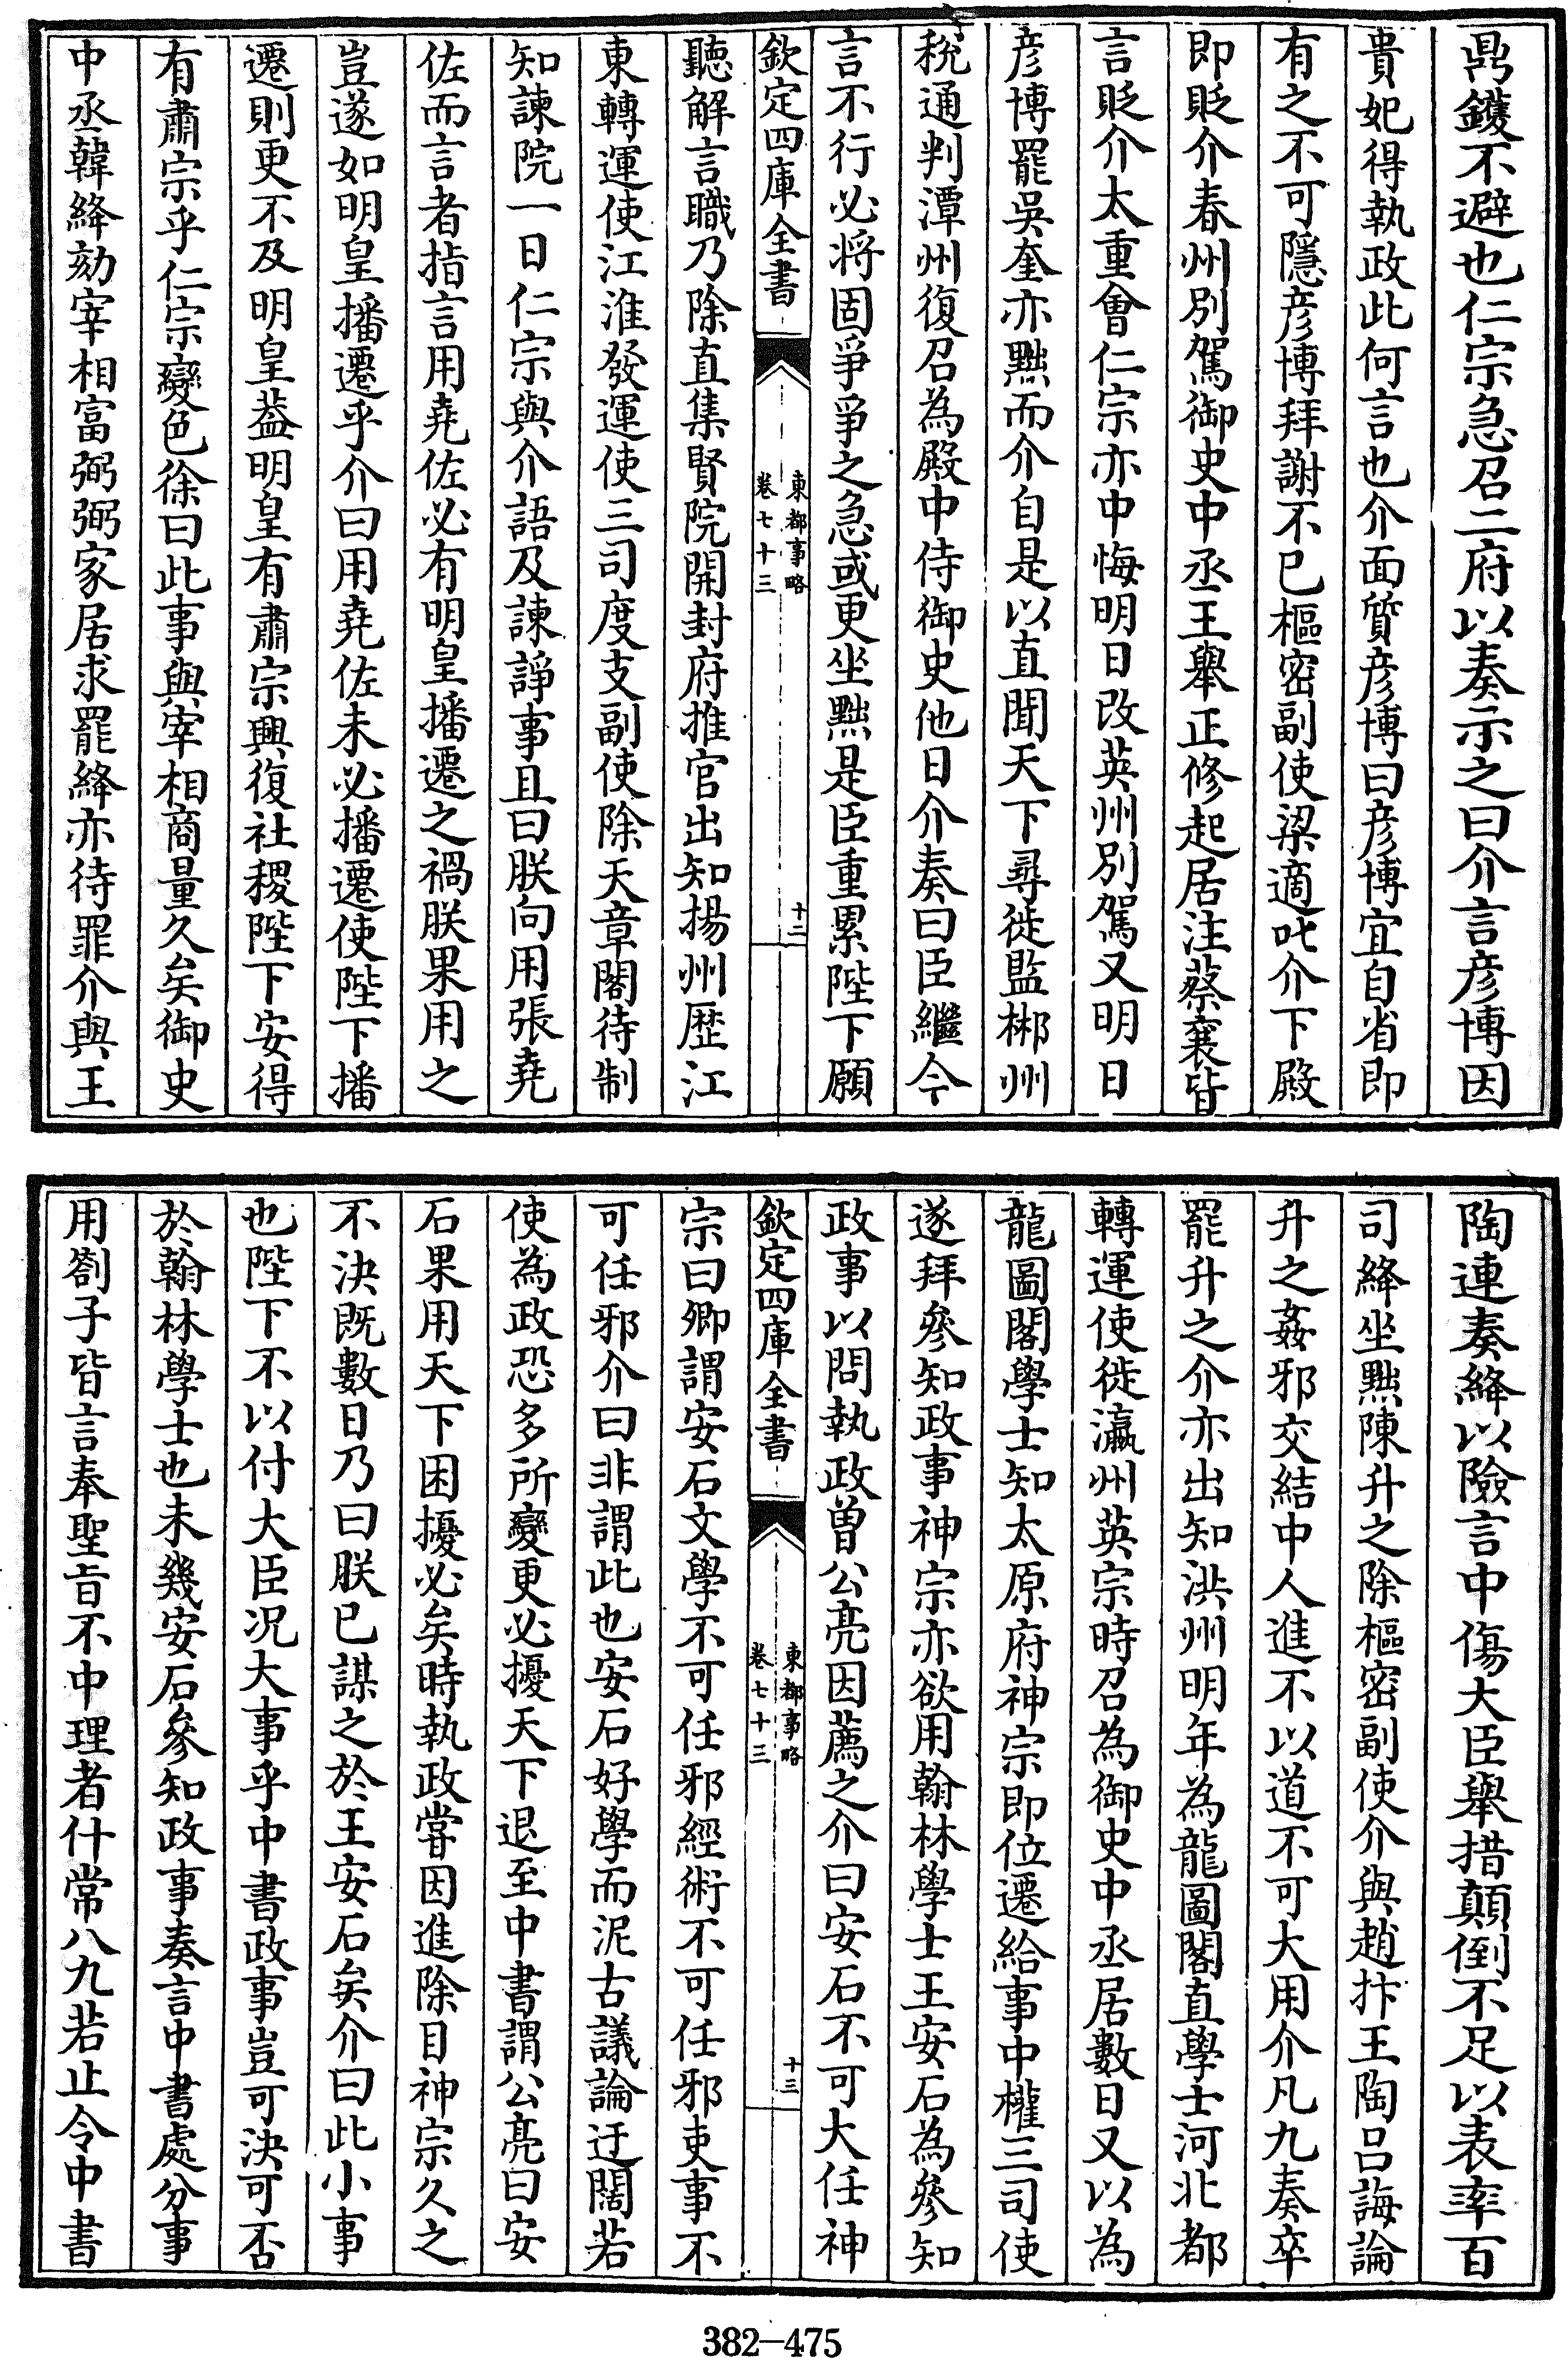 鼎鑊不避也仁宗急召二府以奏示之曰介言彦博因
貴妃得執政此何言也介面質彦博曰彦博宜自省即
有之不可隱彦博拜謝不已樞密副使梁適叱介下殿
即貶介春州別駕御史中丞王舉正修起居注蔡襄皆
言貶介太重會仁宗亦中悔明日改英州別駕又明日
彦博罷吳奎亦黜而介自是以直聞天下尋徙監郴州
稅通判潭州復召為殿中侍御史他日介奏曰臣繼今
言不行必將固爭爭之急或更坐黜是臣重累陛下願
欽定四庫全書
東都事略
卷七十三
十二
聽解言職乃除直集賢院開封府推官出知揚州歷江
東轉運使江淮發運使三司度支副使除天章閣待制
知諫院一日仁宗與介語及諫諍事且曰朕向用張堯
佐而言者指言用堯佐必有明皇播遷之禍朕果用之
豈遂如明皇播遷乎介曰用堯佐未必播遷使陛下播
遷則更不及明皇葢明皇有肅宗興復社稷陛下安得
有肅宗乎仁宗變色徐曰此事與宰相商量久矣御史
中丞韓絳劾宰相富弼弼家居求罷絳亦待罪介與王
陶連奏絳以險言中傷大臣舉措顛倒不足以表率百
司絳坐黜陳升之除樞密副使介與趙抃王陶呂誨論
升之姦邪交結中人進不以道不可大用介凡九奏卒
罷升之介亦出知洪州明年為龍圖閣直學士河北都
轉運使徙瀛州英宗時召為御史中丞居數日又以為
龍圖閣學士知太原府神宗即位遷給事中權三司使
遂拜參知政事神宗亦欲用翰林學士王安石為參知
政事以問執政曾公亮因薦之介曰安石不可大任神
欽定四庫全書
東都事略
卷七十三
十三
宗曰卿謂安石文學不可任邪經術不可任邪吏事不
可任邪介曰非謂此也安石好學而泥古議論迂闊若
使為政恐多所變更必擾天下退至中書謂公亮曰安
石果用天下困擾必矣時執政嘗因進除目神宗久之
不決既數日乃曰朕已謀之於王安石矣介曰此小事
也陛下不以付大臣況大事乎中書政事豈可決可否
於翰林學士也未幾安石參知政事奏言中書處分事
用劄子皆言奉聖旨不中理者什常八九若止令中書
382-475